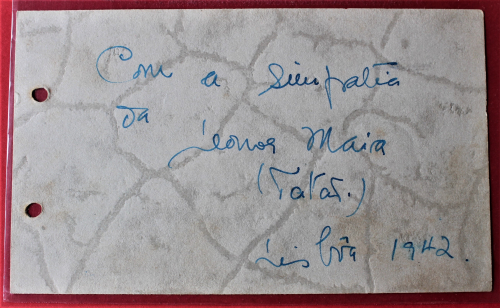 Com a simpatia
da
Leonor Maia
(Tatão.)
Lisbôa 1942.